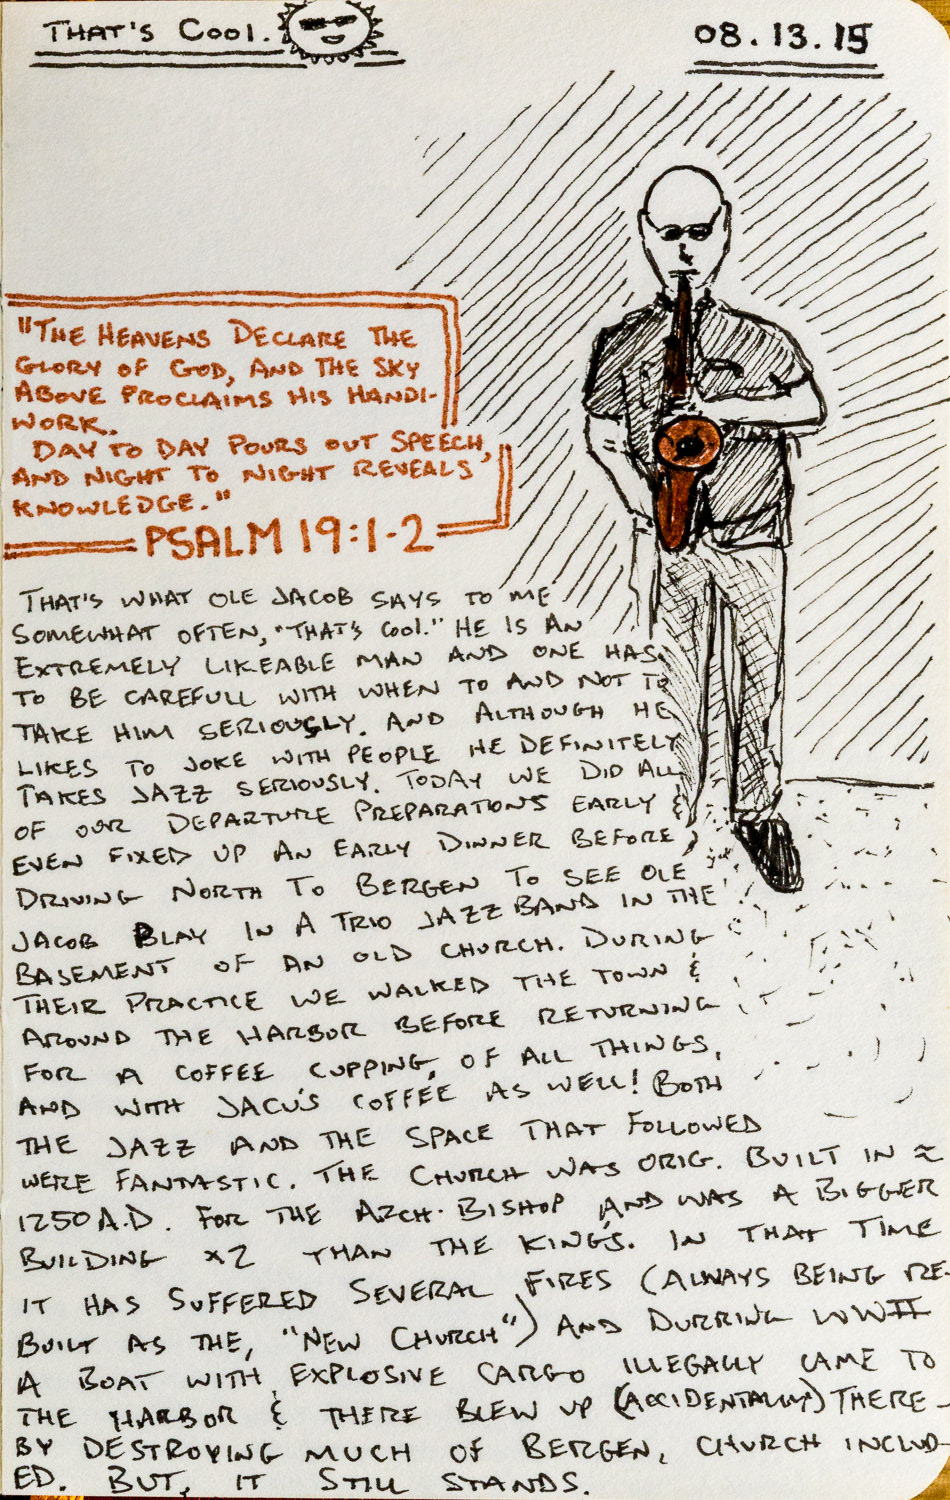 THAT'S COOL.
08.13.15
"THE HEAVENS DECLARE THE
GLORY OF GOD, AND THE SKY
ABOVE PROCLAIMS HIS HANDI-
WORK.
DAY TO DAY POURS OUT SPEECH,
AND NIGHT TO NIGHT REVEALS
KNOWLEDGE."
PSALM 19:1-2
THAT'S WHAT OLE JACOB SAYS TO ME
SOMEWHAT OFTEN, "THAT'S COOL." HE IS AN
EXTREMELY LIKEABLE MAN AND ONE HAS
TO BE CAREFULL WITH WHEN TO AND NOT TO
TAKE HIM SERIOUSLY. AND ALTHOUGH HE
LIKES TO JOKE WITH PEOPLE HE DEFINITELY
TAKES JAZZ SERIOUSLY. TODAY WE DID ALL
OF OUR DEPARTURE PREPARATIONS EARLY &
EVEN FIXED UP AN EARLY DINNER BEFORE
DRIVING NORTH TO BERGEN TO SEE OLE
JACOB PLAY IN A TRIO JAZZ BAND IN THE
BASEMENT OF AN OLD CHURCH. DURING
THEIR PRACTICE WE WALKED THE TOWN &
AROUND THE HARBOR BEFORE RETURNING
FOR A COFFEE CUPPING, OF ALL THINGS,
AND WITH JACU'S COFFEE AS WELL! BOTH
THE JAZZ AND THE SPACE THAT FOLLOWED
WERE FANTASTIC. THE CHURCH WAS ORIG. BUILT IN ≈
1250 A.D. FOR THE ARCH-BISHOP AND WAS A BIGGER
BUILDING x2 THAN THE KING'S. IN THAT TIME
IT HAS SUFFERED SEVERAL FIRES (ALWAYS BEING RE-
BUILT AS THE, "NEW CHURCH") AND DURRING WWII
A BOAT WITH EXPLOSIVE CARGO ILLEGALLY CAME TO
THE HARBOR & THERE BLEW UP (ACCIDENTALLY) THERE-
BY DESTROYING MUCH OF BERGEN, CHURCH INCLUD-
ED. BUT, IT STILL STANDS.